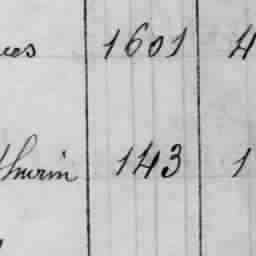 ues 1601 4
thurin 143 1